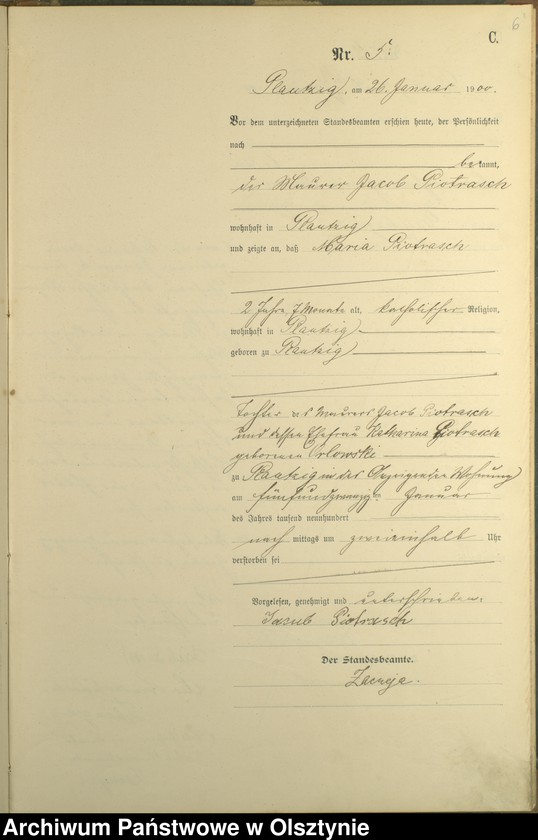 6
C.
Nr. 5.
Plautzig, am 26. Januar 1900.
Vor dem unterzeichneten Standesbeamten erschien heute, der Persönlichkeit
nach
bekannt,
der Maurer Jacob Piotrasch
wohnhaft in Plautzig
und zeigte an, daß Maria Piotrasch
2 Jahre 7 Monate alt, katholischer Religion,
wohnhaft in Plautzig
geboren zu Plautzig
Tochter des Maurers Jacob Piotrasch
und dessen Ehefrau Katharina Piotrasch
geborenen Orlowski
zu Plautzig in des Anzeigenden Wohnung
am fünfundzwanzigsten Januar
des Jahres tausend neunhundert
nach mittags um zweieinhalb Uhr
verstorben sei
Vorgelesen, genehmigt und unterschrieben.
Jacub Piotrasch
Der Standesbeamte.
Archiwum Państwowe w Olsztynie